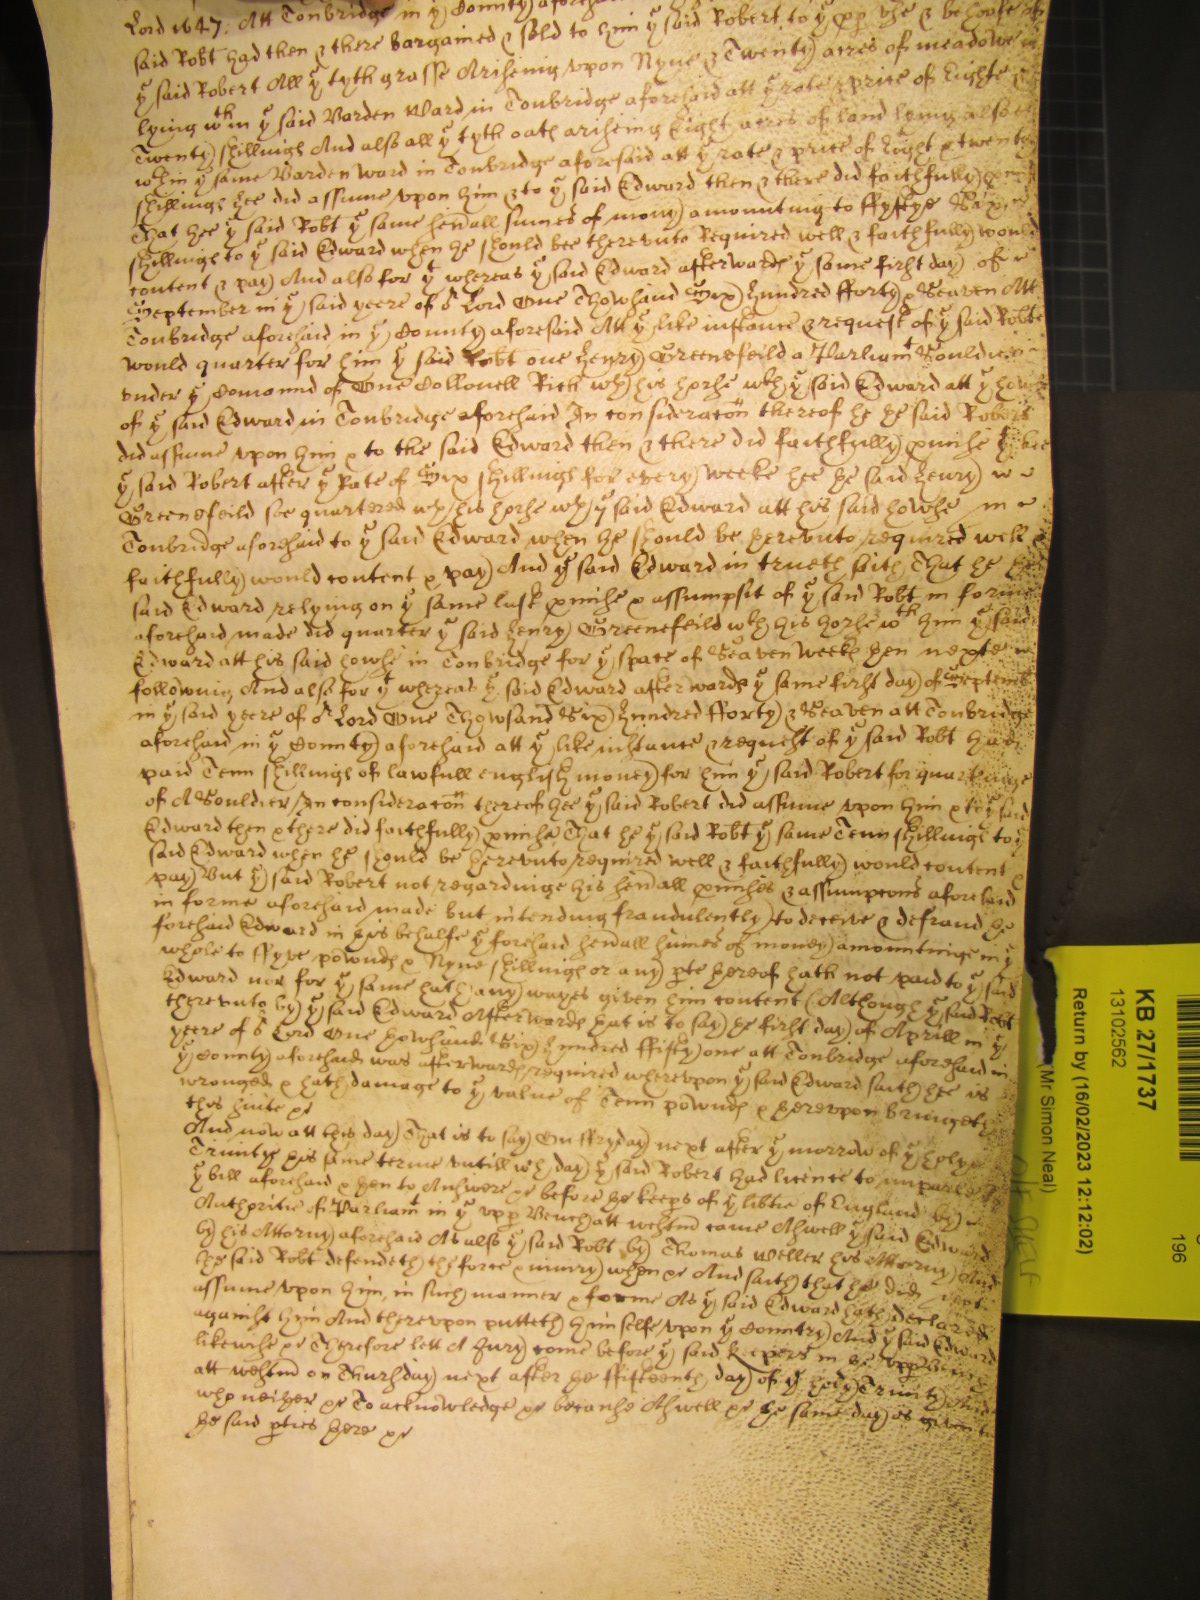 Lord 1647. Att Tonbridge in ye County aforesaid
said Robt had then & there bargained & sold to him ye said Robert to ye pp use & behoofe of
ye said Robert All ye tyth grasse Ariseing upon Nyne & Twenty acres of meadowe
lying wth in ye said Barden Ward in Tonbridge aforesaid att ye rate & price of Eighte &
Twenty shillings And also all ye tyth oats ariseing Eight acres of land lying also
wthin ye same Barden Ward in Tonbridge aforesaid att ye rate & price of Eight & twenty
shillings hee did assume upon him & to ye said Edward then & there did faithfully
That hee ye said Robt ye same sevall summes of mony amounting to ffyftye Six
shillings to ye said Edward when he should bee thereunto Required well & faithfully would
content & pay And also for yt whereas ye said Edward afterwards ye same first day of
September in ye said yeere of or Lord One Thowsand Six hundred fforty & Seaven Att
Tonbridge aforesaid in ye County aforesaid Att ye like instance & request of ye said Robte
would quarter for him ye said Robt one Henry Greenefeild a Parliamt Souldier
under ye Comannd of One Collonell Rich wth his horse wth ye said Edward att ye howse
of ye said Edward in Tonbridge aforesaid In consideracon thereof he ye said Robert
did assume upon him & to the said Edward then & there did faithfully pmise
ye said Robert after ye Rate of Six shillings for every weeke hee ye said Henry
Greenefeild soe quartered wth his horse wth ye said Edward att his said howse in
Tonbridge aforesaid to ye said Edward when he should be yereunto required well &
faithfully would content & pay And ye said Edward in trueth saith That he ye
said Edward relying on ye same last pmise & assumpsit of ye said Robt in forme
aforesaid made did quarter ye said Henry Greenefeild wth his horse wth him ye said
Edward att his said howse in Tonbridge for ye space of Seaven weeks yen next
following And also for yt whereas ye said Edward afterwards ye same first day of Septemb
in ye said yeere of or Lord One Thowsand Six hundred fforty & Seaven att Tonbridge
aforesaid in ye County aforesaid att ye like instance & request of ye said Robt had
paid Tenn shillings of lawfull english money for him ye said Robert for quarteringe
of A Souldier In consideracon thereof hee ye said Robert did assume upon him & to ye said
Edward then & there did faithfully pmise That he ye said Robt ye same Tenn shillings to ye
said Edward when he should be yereunto required well & faithfully would content &
pay But ye said Robert not regardinge his sevall pmises & assumpcons aforesaid
in forme aforesaid made but intending fraudulently to deceive & defraud ye
foresaid Edward in yis behalfe ye foresaid sevall sumes of money amountinge in ye
whole to ffyve pownds & Nyne shillings or any pte yereof hath not paid to ye said
Edward nor for ye same hath any wayes given him content (Although ye said Robt
thereunto by ye said Edward Afterwards yat is to say ye first day of Aprill in ye
yeere of or Lord One thowsand Six hundred ffifty one att Tonbridge aforesaid in
ye County aforesaid was afterwards required whereupon ye said Edward saith hee is
wronged & hath damage to ye value of Tenn pownds & yereupon bringeth
this suite &c
And now att this day That is to say On ffryday next after ye morrow of ye holy
Trinity yis same terme untill wch day ye said Robert had licence to imparle to
ye bill aforesaid & yen to Answere &c before ye keeps of ye libtie of England by
Authoritie of Parliamt in ye upp Bench att westm came Aswell ye said Edward
by his Attorny aforesaid As also ye said Robt by Thomas Weller his Attorny And
ye said Robt defendeth the force & iniury when &c And saith that he did not
assume upon him in such manner & forme As ye said Edward hath declared
against him And thereupon putteth himselfe upon ye Country And ye said Edward
likewise &c Therefore lett A Jury come before ye said keepers in ye upp Bench
att westm on Thursday next after ye ffifteenth day of ye holy Trinity And
who neither &c To acknowledge &c because Aswell &c ye same day is given to
ye said pties yere &c
KB 27/1737
13102562
Return by (16/02/2023 12:12:02)
(Mr Simon Neal)
196